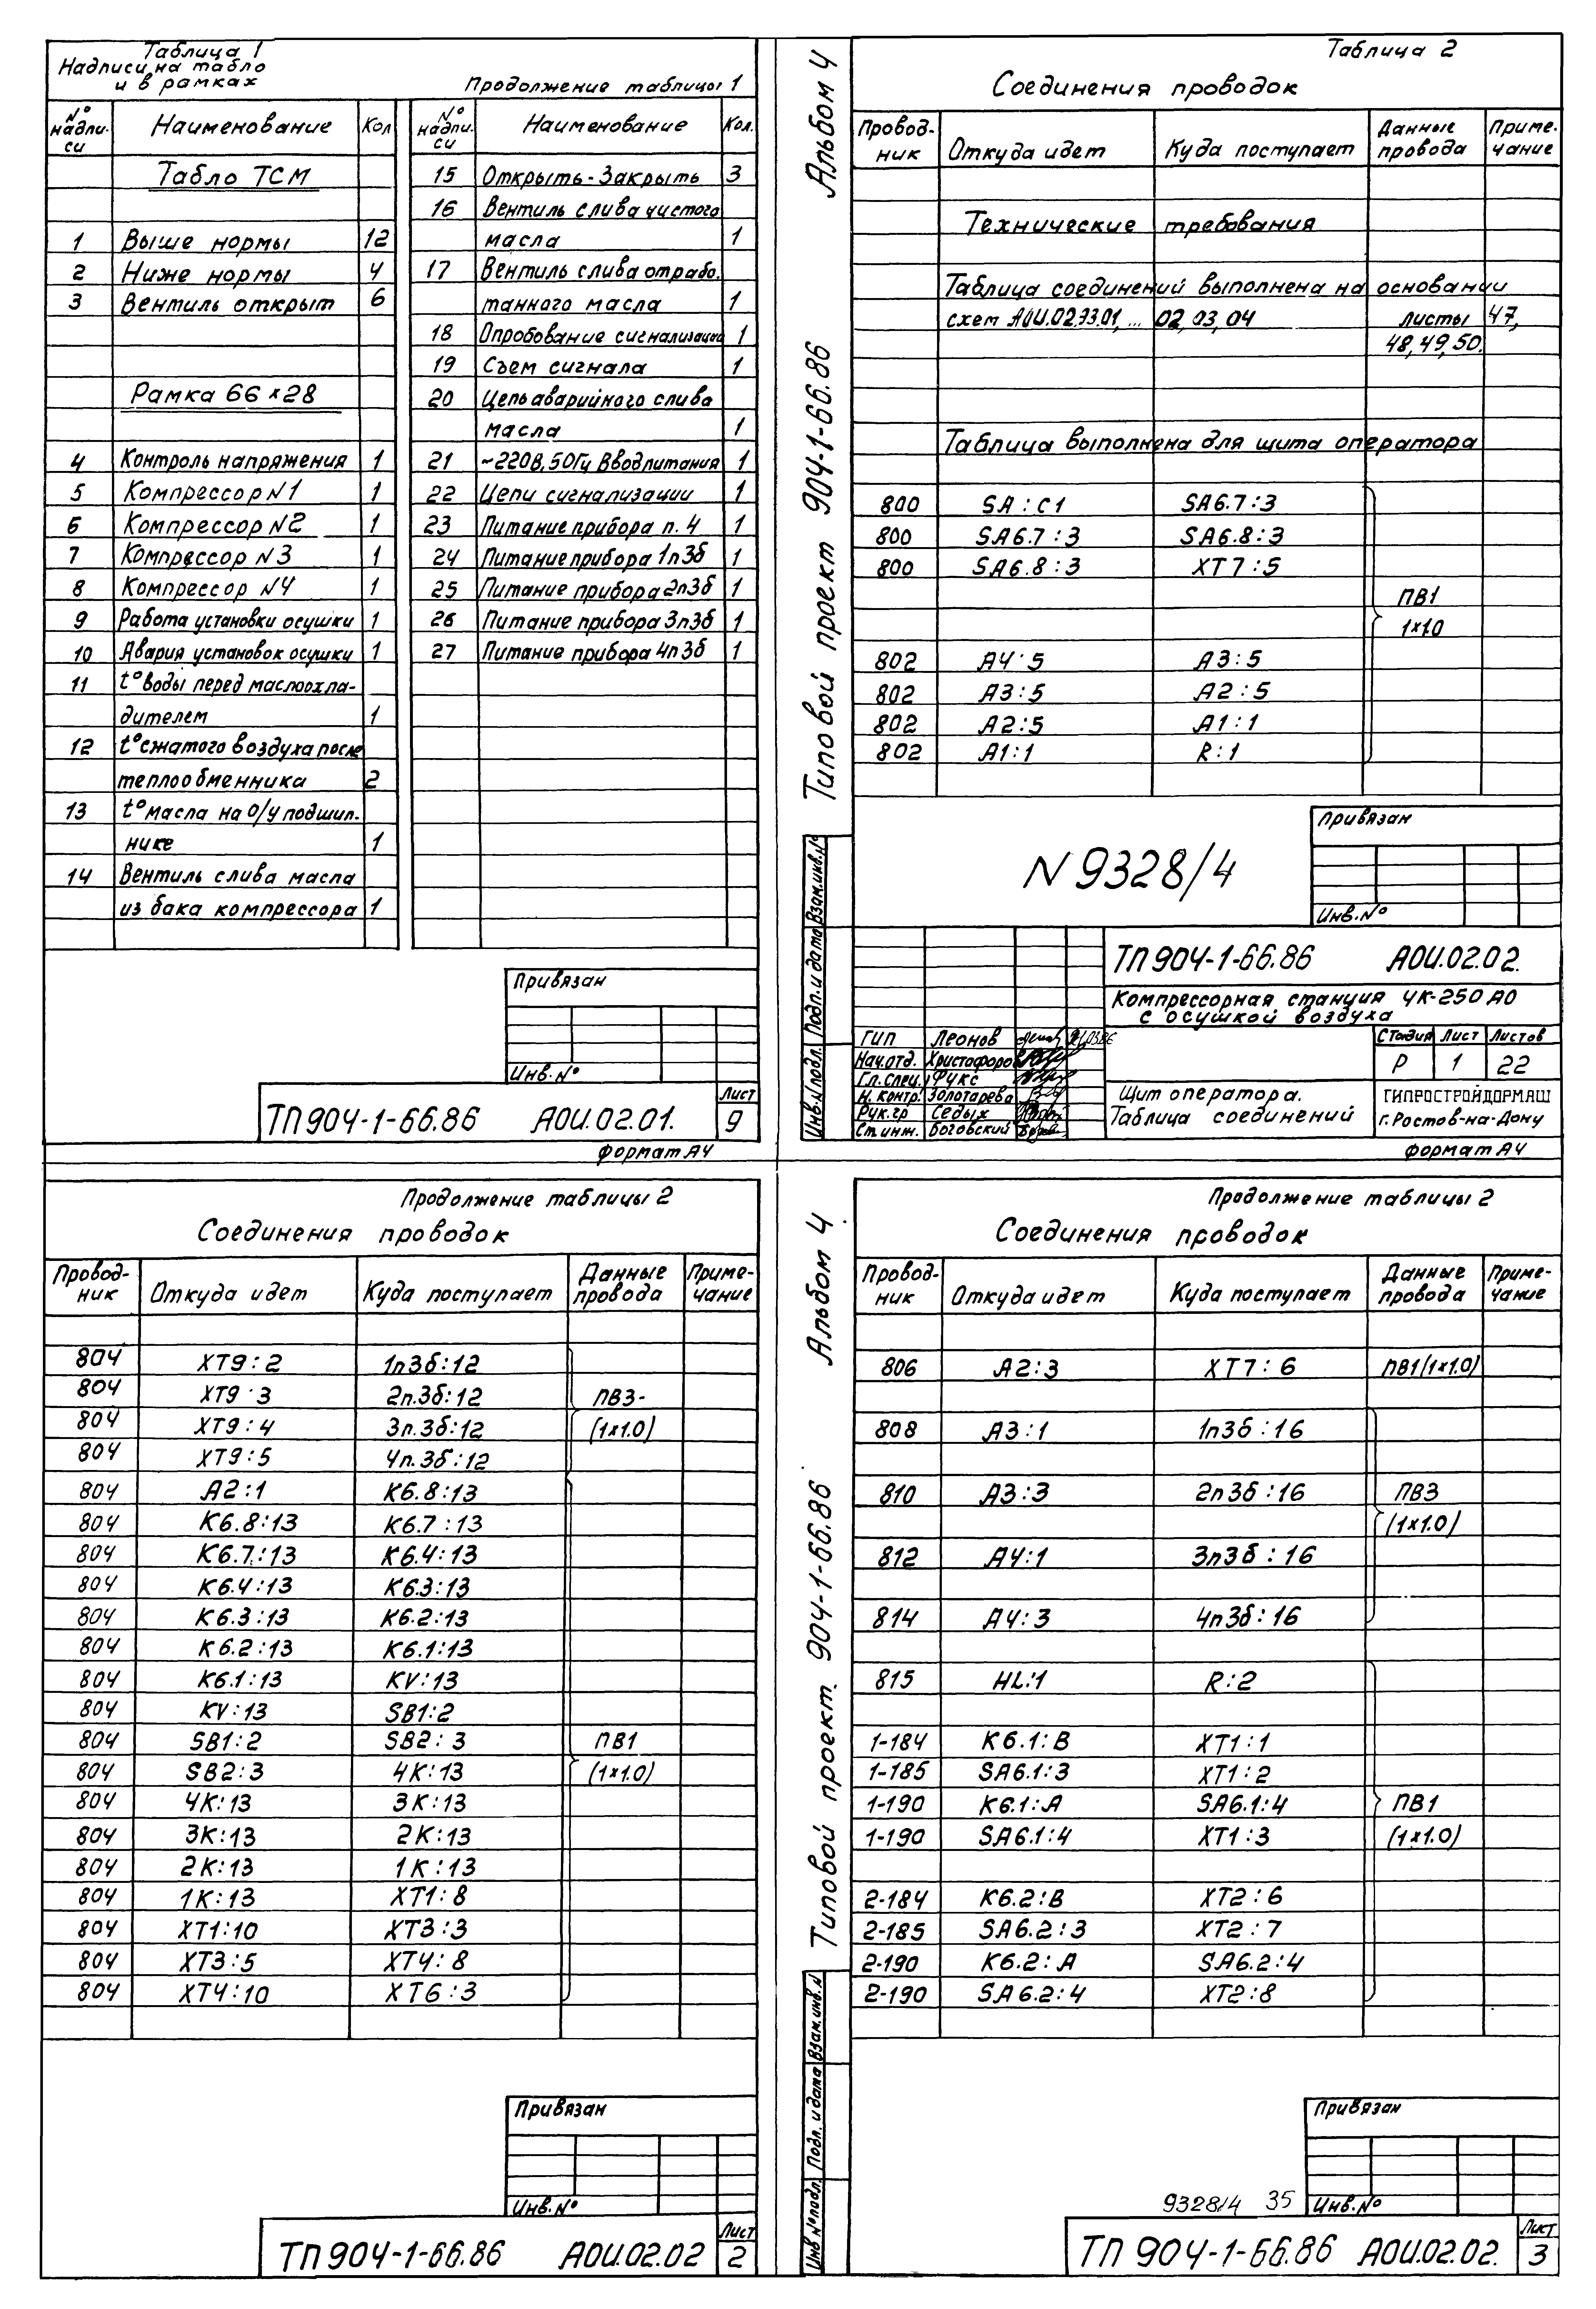 Таблица 1
Надписи на табло
и в рамках
Продолжение таблицы 1
№ надписи Наименование Кол
Табло ТСМ
1 Выше нормы 12
2 Ниже нормы 4
3 Вентиль открыт 6
Рамка 66×28
4 Контроль напряжения 1
5 Компрессор N1 1
6 Компрессор N2 1
7 Компрессор N3 1
8 Компрессор N4 1
9 Работа установки осушки 1
10 Авария установок осушки 1
11 t° воды перед маслоохла-
дителем 1
12 t° сжатого воздуха после
теплообменника 2
13 t° масла на о/у подшип-
нике 1
14 Вентиль слива масла
из бака компрессора 1
№ надписи Наименование Кол.
15 Открыть-Закрыть 3
16 Вентиль слива чистого
масла 1
17 Вентиль слива отрабо-
танного масла 1
18 Опробование сигнализации 1
19 Съем сигнала 1
20 Цепь аварийного слива
масла 1
21 ~220В, 50Гц Ввод питания 1
22 Цепи сигнализации 1
23 Питание прибора п. 4 1
24 Питание прибора 1п3б 1
25 Питание прибора 2п3б 1
26 Питание прибора 3п3б 1
27 Питание прибора 4п3б 1
Привязан
Инв.№
ТП 904-1-66.86 АОИ.02.01. Лист 9
формат А4
Альбом 4
Типовой проект 904-1-66.86
Таблица 2
Соединения проводок
Проводник Откуда идет Куда поступает Данные провода Примечание
Технические требования
Таблица соединений выполнена на основании
схем АОИ.02.93.01,... 02,03,04 листы 47,
48, 49, 50.
Таблица выполнена для щита оператора
800 SA : C1 SA6.7:3
800 SA6.7:3 SA6.8:3
800 SA6.8:3 XT7:5
ПВ1
1×1.0
802 A4:5 A3:5
802 A3:5 A2:5
802 A2:5 A1:1
802 A1:1 R:1
Привязан
Инв.№
N 9328/4
Инв.N подл. Подп. и дата Взам.инв.№
ТП 904-1-66.86 АОИ.02.02.
Компрессорная станция 4К-250 АО
с осушкой воздуха
ГИП Леонов
Нач.отд. Христофоро
Гл.спец. Фукс
Н. контр. Золотарева
Рук.гр Седых
Ст.инж. Боговский
Стадия Лист Листов
Р 1 22
Щит оператора.
Таблица соединений
ГИПРОСТРОЙДОРМАШ
г.Ростов-на-Дону
формат А4
Продолжение таблицы 2
Соединения проводок
Проводник Откуда идет Куда поступает Данные провода Примечание
804 XT9:2 1п3б:12
804 XT9:3 2п.3б:12 ПВ3-
804 XT9:4 3п.3б:12 (1×1.0)
804 XT9:5 4п.3б:12
804 A2:1 K6.8:13
804 K6.8:13 K6.7:13
804 K6.7:13 K6.4:13
804 K6.4:13 K6.3:13
804 K6.3:13 K6.2:13
804 K6.2:13 K6.1:13
804 K6.1:13 KV:13
804 KV:13 SB1:2
804 SB1:2 SB2:3 ПВ1
804 SB2:3 4K:13 (1×1.0)
804 4K:13 3K:13
804 3K:13 2K:13
804 2K:13 1K:13
804 1K:13 XT1:8
804 XT1:10 XT3:3
804 XT3:5 XT4:8
804 XT4:10 XT6:3
Привязан
Инв.№
ТП 904-1-66.86 АОИ.02.02 Лист 2
Альбом 4
Типовой проект. 904-1-66.86
Продолжение таблицы 2
Соединения проводок
Проводник Откуда идет Куда поступает Данные провода Примечание
806 A2:3 XT7:6 ПВ1(1×1.0)
808 A3:1 1п3б:16
810 A3:3 2п3б:16 ПВ3
(1×1.0)
812 A4:1 3п3б:16
814 A4:3 4п3б:16
815 HL:1 R:2
1-184 K6.1:B XT1:1
1-185 SA6.1:3 XT1:2
1-190 K6.1:A SA6.1:4 ПВ1
1-190 SA6.1:4 XT1:3 (1×1.0)
2-184 K6.2:B XT2:6
2-185 SA6.2:3 XT2:7
2-190 K6.2:A SA6.2:4
2-190 SA6.2:4 XT2:8
Инв №подл. Подп. и дата Взам.инв.N
Привязан
9328/4 35 Инв.№
ТП 904-1-66.86 АОИ.02.02. Лист 3